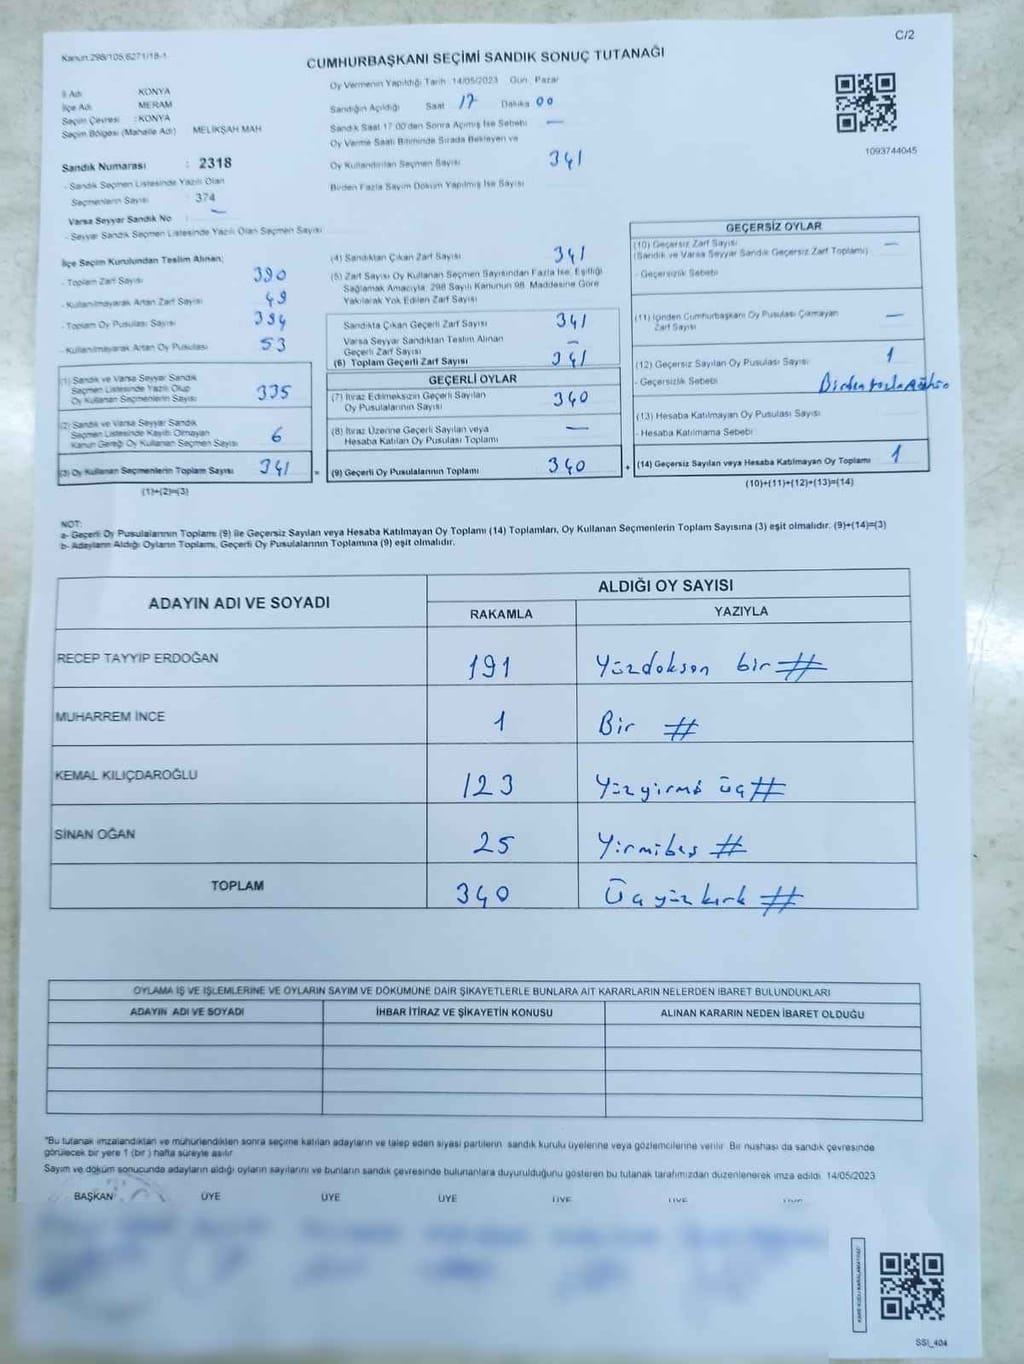 C/2
Kanun:298/105,6271/18-1
CUMHURBAŞKANI SEÇİMİ SANDIK SONUÇ TUTANAĞI
Oy Vermenin Yapıldığı Tarih :14/05/2023 Gün: Pazar
İl Adı KONYA
İlçe Adı MERAM
Seçim Çevresi :KONYA
Seçim Bölgesi (Mahalle Adı) MELİKŞAH MAH
Sandığın Açıldığı Saat 17 Dakika 00
Sandık Saat 17:00'den Sonra Açılmış İse Sebebi —
Oy Verme Saati Bitiminde Sırada Bekleyen ve
1093744045
Sandık Numarası : 2318
Oy Kullandırılan Seçmen Sayısı 341
- Sandık Seçmen Listesinde Yazılı Olan
Seçmenlerin Sayısı : 374
Birden Fazla Sayım Döküm Yapılmış İse Sayısı
Varsa Seyyar Sandık No : —
- Seyyar Sandık Seçmen Listesinde Yazılı Olan Seçmen Sayısı :
İlçe Seçim Kurulundan Teslim Alınan;
- Toplam Zarf Sayısı 390
- Kullanılmayarak Artan Zarf Sayısı 49
- Toplam Oy Pusulası Sayısı 394
- Kullanılmayarak Artan Oy Pusulası 53
(1) Sandık ve Varsa Seyyar Sandık
Seçmen Listesinde Yazılı Olup
Oy Kullanan Seçmenlerin Sayısı 335
(2) Sandık ve Varsa Seyyar Sandık
Seçmen Listesinde Kaydı Olmayan
Kanun Gereği Oy Kullanan Seçmen Sayısı 6
(3) Oy Kullanan Seçmenlerin Toplam Sayısı 341 =
(1)+(2)=(3)
(4) Sandıktan Çıkan Zarf Sayısı 341
(5) Zarf Sayısı Oy Kullanan Seçmen Sayısından Fazla İse, Eşitliği
Sağlamak Amacıyla, 298 Sayılı Kanunun 98. Maddesine Göre
Yakılarak Yok Edilen Zarf Sayısı
Sandıkta Çıkan Geçerli Zarf Sayısı 341
Varsa Seyyar Sandıktan Teslim Alınan
Geçerli Zarf Sayısı —
(6) Toplam Geçerli Zarf Sayısı 341
GEÇERLİ OYLAR
(7) İtiraz Edilmeksizin Geçerli Sayılan
Oy Pusulalarının Sayısı 340
(8) İtiraz Üzerine Geçerli Sayılan veya
Hesaba Katılan Oy Pusulası Toplamı —
(9) Geçerli Oy Pusulalarının Toplamı 340 +
GEÇERSİZ OYLAR
(10) Geçersiz Zarf Sayısı —
(Sandık ve Varsa Seyyar Sandık Geçersiz Zarf Toplamı)
- Geçersizlik Sebebi
(11) İçinden Cumhurbaşkanı Oy Pusulası Çıkmayan
Zarf Sayısı —
(12) Geçersiz Sayılan Oy Pusulası Sayısı 1
- Geçersizlik Sebebi Birden fazla
(13) Hesaba Katılmayan Oy Pusulası Sayısı
- Hesaba Katılmama Sebebi
(14) Geçersiz Sayılan veya Hesaba Katılmayan Oy Toplamı 1
(10)+(11)+(12)+(13)=(14)
NOT:
a- Geçerli Oy Pusulalarının Toplamı (9) ile Geçersiz Sayılan veya Hesaba Katılmayan Oy Toplamı (14) Toplamları, Oy Kullanan Seçmenlerin Toplam Sayısına (3) eşit olmalıdır. (9)+(14)=(3)
b- Adayların Aldığı Oyların Toplamı, Geçerli Oy Pusulalarının Toplamına (9) eşit olmalıdır.
ADAYIN ADI VE SOYADI ALDIĞI OY SAYISI
RAKAMLA YAZIYLA
RECEP TAYYİP ERDOĞAN 191 Yüzdoksan bir #
MUHARREM İNCE 1 Bir #
KEMAL KILIÇDAROĞLU 123 Yüzyirmi üç #
SİNAN OĞAN 25 Yirmibeş #
TOPLAM 340 Üçyüz kırk #
OYLAMA İŞ VE İŞLEMLERİNE VE OYLARIN SAYIM VE DÖKÜMÜNE DAİR ŞİKAYETLERLE BUNLARA AİT KARARLARIN NELERDEN İBARET BULUNDUKLARI
ADAYIN ADI VE SOYADI İHBAR İTİRAZ VE ŞİKAYETİN KONUSU ALINAN KARARIN NEDEN İBARET OLDUĞU
*Bu tutanak imzalandıktan ve mühürlendikten sonra seçime katılan adayların ve talep eden siyasi partilerin sandık kurulu üyelerine veya gözlemcilerine verilir. Bir nüshası da sandık çevresinde
görülecek bir yere 1 (bir ) hafta süreyle asılır.
Sayım ve döküm sonucunda adayların aldığı oyların sayılarını ve bunların sandık çevresinde bulunanlara duyurulduğunu gösteren bu tutanak tarafımızdan düzenlenerek imza edildi. 14/05/2023
BAŞKAN ÜYE ÜYE ÜYE ÜYE ÜYE
SSI_404